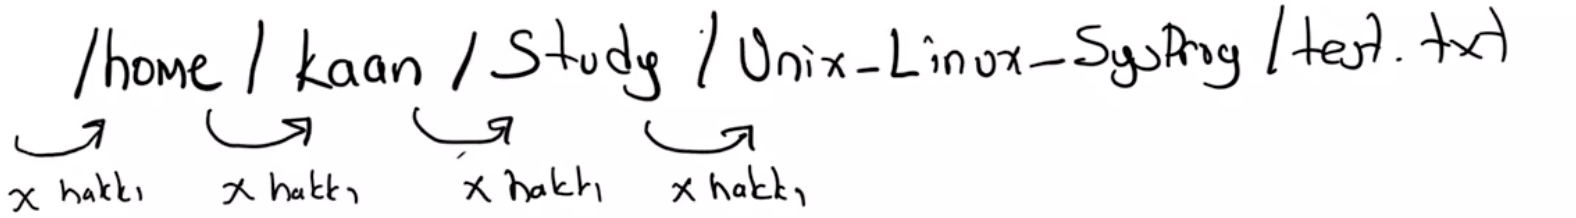 /home / kaan / Study / Unix-Linux-SysProg / test.txt
x hakkı x hakkı x hakkı x hakkı